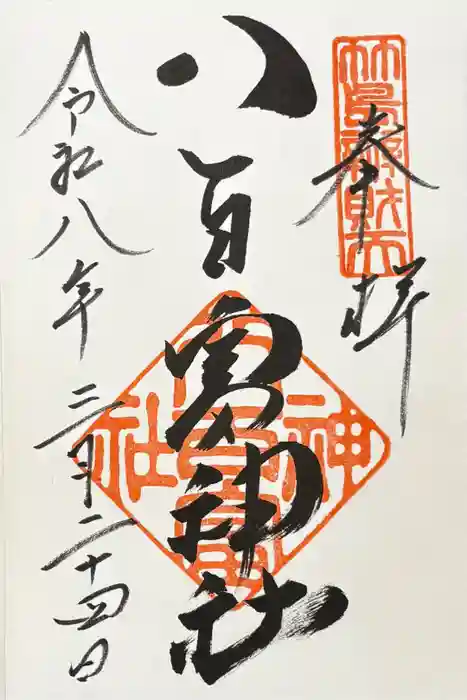 奉拝
竹島辯財天
八百富神社
八百富神社
令和八年三月二十四日